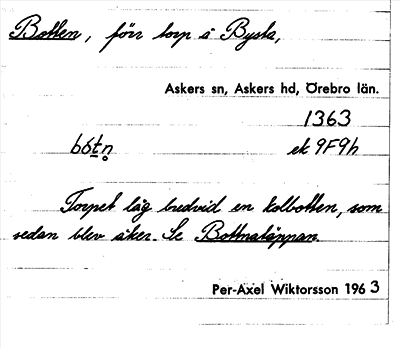 Botten, förr torp å Bysta,
Askers sn, Askers hd, Örebro län.
1363
bót̲n̥ ek 9F9h
Torpet låg bredvid en kolbotten, som
sedan blev åker. Se Bottnatäppan.
Per-Axel Wiktorsson 1963